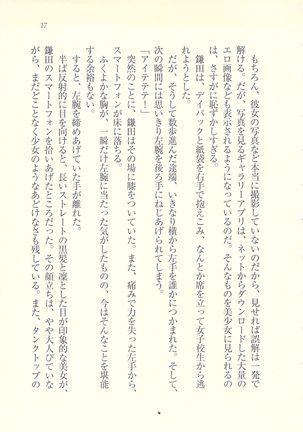 17
もちろん、彼女の写真など本当に撮影していないのだから、見せれば誤解は一発で
解ける。だが、写真を見るギャラリーアプリは、ネットからダウンロードした大量の
エロ画像なども表示されるようになっているのだ。そんなものを美少女に見られるの
は、さすがに恥ずかしすぎる。
鎌田は、デイパックと紙袋を右手で抱えこみ、なんとか席を立って女子校生から逃
れようとした。
だが、そうして数歩進んだ途端、いきなり横から左手を誰かにつかまれた。そして、
次の瞬間には思いきり左腕を後ろ手にねじあげられてしまう。
「アイテテテ！」
突然のことに、鎌田はその場に膝をついていた。また、痛みで力を失った左手から、
スマートフォンが床に落ちる。
ふくよかな胸が、一瞬だけ左腕に当たった気がしたものの、今はそんなことを堪能
する余裕もない。
すると、左腕を締めあげていた手が離れた。
半ば反射的に目を向けると、長いストレートの黒髪と凜とした目が印象的な美女が、
鎌田のスマートフォンを拾いあげたところだった。その顔立ちは、やや大人びていな
がら、まだどことなく少女のようなあどけなさも残している。また、タンクトップの